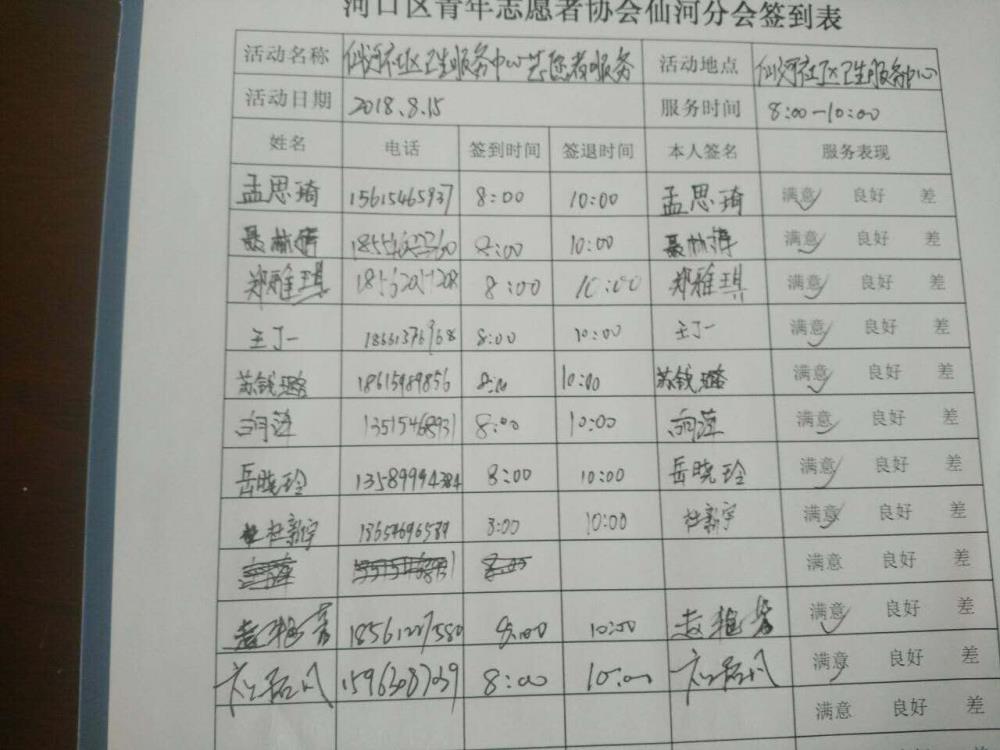 河口区青年志愿者协会仙河分会签到表
活动名称 仙河社区卫生服务中心志愿者服务 活动地点 仙河社区卫生服务中心
活动日期 2018.8.15 服务时间 8:00-10:00
姓名 电话 签到时间 签退时间 本人签名 服务表现
孟思琦 15615465937 8:00 10:00 孟思琦 满意 良好 差
8:00 10:00 满意 良好 差
郑雅琪 8:00 10:00 郑雅琪 满意 良好 差
王丁一 8:00 10:00 王丁一 满意 良好 差
苏钱璐 18615989856 8:00 10:00 苏钱璐 满意 良好 差
13515468931 8:00 10:00 满意 良好 差
岳晓玲 13589994384 8:00 10:00 岳晓玲 满意 良好 差
杜新宇 13654696584 8:00 10:00 杜新宇 满意 良好 差
满意 良好 差
18561227580 8:00 10:00 满意 良好 差
15963087039 8:00 10:00 满意 良好 差
满意 良好 差